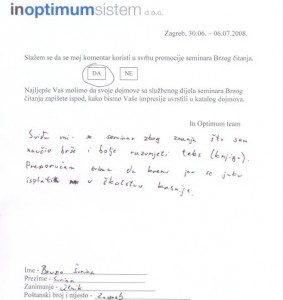 inoptimumsistem d.o.o.
Zagreb, 30.06. – 06.07.2008.
Slažem se da se moj komentar koristi u svrhu promocije seminara Brzog čitanja.
DA NE
Najljepše Vas molimo da svoje dojmove sa službenog dijela seminara Brzog
čitanja zapišete ispod, kako bismo Vaše impresije uvrstili u katalog dojmova.
In Optimum team
Sviđa mi se seminar zbog znanja što sam
naučio brže i bolje razumjeti teks (knjige).
Preporučam da jer se jako
isplati u školstvu kasnije.
Ime -
Prezime -
Zanimanje - učenik
Poštanski broj i mjesto - Zagreb